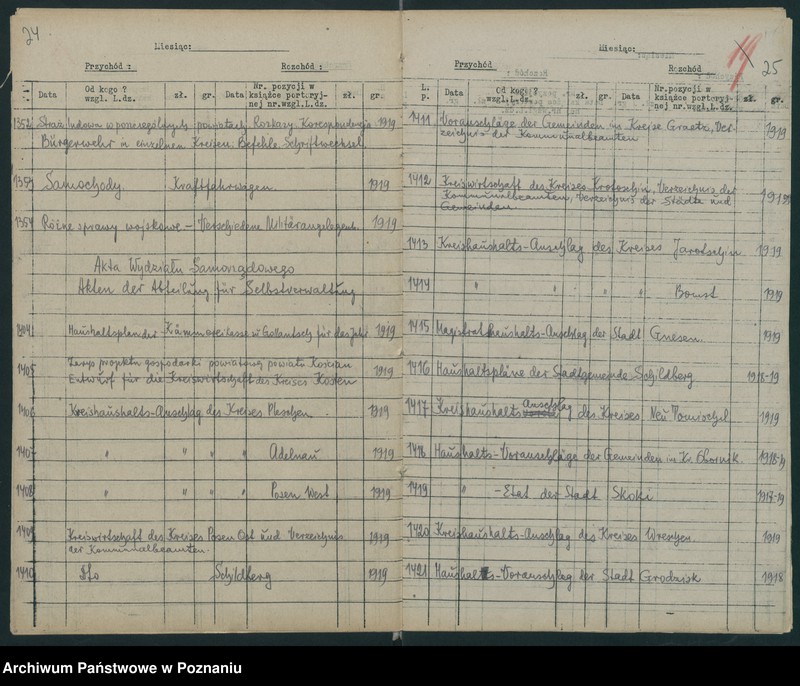 24
Miesiąc:
Przychód :
Rozchód :
Data
Od kogo ?
wzgl. L.dz.
zł.
gr.
Data
Nr. pozycji w
książce portoryj-
nej nr.wzgl.L.dz.
zł.
gr.
1352 Straż ludowa w poszczególnych powiatach. Rozkazy. Korespondencja 1919
Bürgerwehr in einzelnen Kreisen. Befehle, Schriftwechsel.
1353 Samochody. Kraftfahrwesen. 1919
1354 Różne sprawy wojskowe – Verschiedene Militärangelegenh. 1919
Akta Wydziału Samorządowego
Akten der Abteilung für Selbstverwaltung
1404 Haushaltsplan der Kämmereikasse in Gollantsch für das Jahr 1919
1405 Zarys projektu gospodarki powiatowej powiatu Kościan
Entwurf für die Kreiswirtschaft des Kreises Kosten 1919
1406 Kreishaushalts-Anschlag des Kreises Pleschen. 1919
1407 " " " " Adelnau 1919
1408 " " " " Posen West 1919
1409 Kreiswirtschaft des Kreises Posen Ost und Verzeichnis 1919
der Kommunalbeamten.
1410 dto Schildberg 1919
25
Miesiąc:
Przychód
Rozchód
L.
p.
Data
Od kogo ?
wzgl.L.dz.
zł.
gr.
Data
Nr.pozycji w
książce portoryj-
nej nr.wzgl.L.dz.
zł.
gr.
1411 Voranschläge der Gemeinden im Kreise Graetz, Ver- 1919
zeichnis der Kommunalbeamten
1412 Kreiswirtschaft des Kreises Krotoschin, Verzeichnis der
Kommunalbeamten, Verzeichnis der Städte und
Gemeinden
1413 Kreishaushalts-Anschlag des Kreises Jarotschin 1919
1414 " " " " Bomst 1919
1415 Magistrathaushalts-Anschlag der Stadt Gnesen. 1919
1416 Haushaltspläne der Stadtgemeinde Schildberg 1918-19
1417 Kreishaushalts Anschlag des Kreises Neu Tomischel 1919
1418 Haushalts-Voranschläge der Gemeinden im Kr. Obornik. 1918-19
1419 " -Etat der Stadt Skoki 1918-19
1420 Kreishaushalts-Anschlag des Kreises Wreschen. 1919
1421 Haushalts-Voranschlag der Stadt Grodzisk 1918
Archiwum Państwowe w Poznaniu